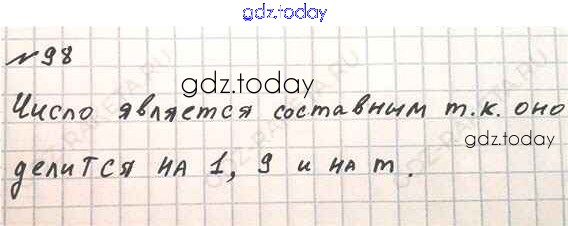 gdz.today
№98
gdz.today
Число является составным т.к. оно
gdz.today
делится на 1, 9 и на m.